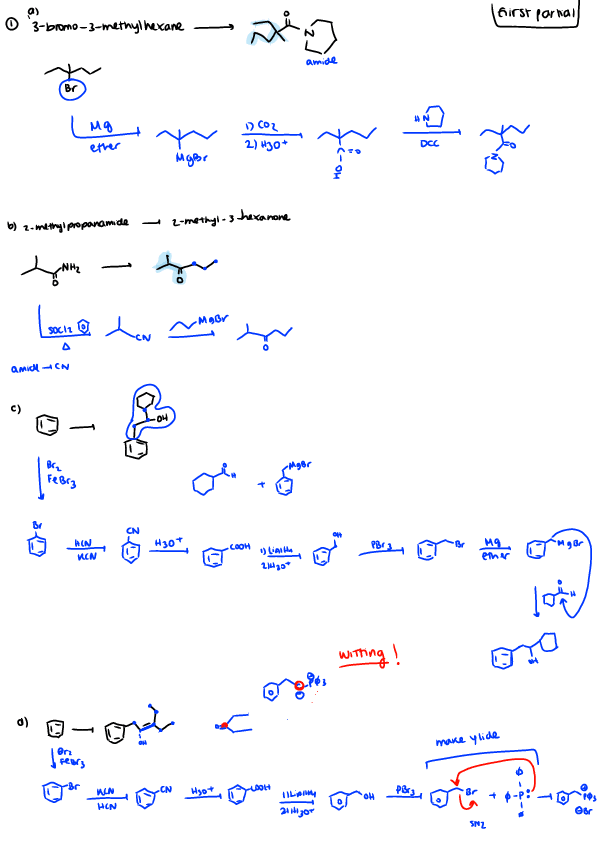 First partial
① a)
3-bromo-3-methylhexane
O
N
amide
Br
Mg
ether
MgBr
1) CO2
2) H3O+
=O
O
H
HN
DCC
O
N
b) 2-methylpropanamide → 2-methyl-3-hexanone
NH2
O
O
SOCl2
Δ
CN
MgBr
O
amide → CN
c)
OH
Br2
FeBr3
O
H
+
MgBr
Br
HCN
KCN
CN
H3O+
COOH
1) LiAlH4
2) H3O+
OH
PBr3
Br
Mg
ether
MgBr
O
H
OH
Witting!
⊕
Pφ3
⊖
d)
OH
O
Br2
FeBr3
make ylide
Br
KCN
HCN
CN
H3O+
COOH
1) LiAlH4
2) H3O+
OH
PBr3
Br
SN2
+
φ
φ-P:
φ
⊕
Pφ3
⊖Br